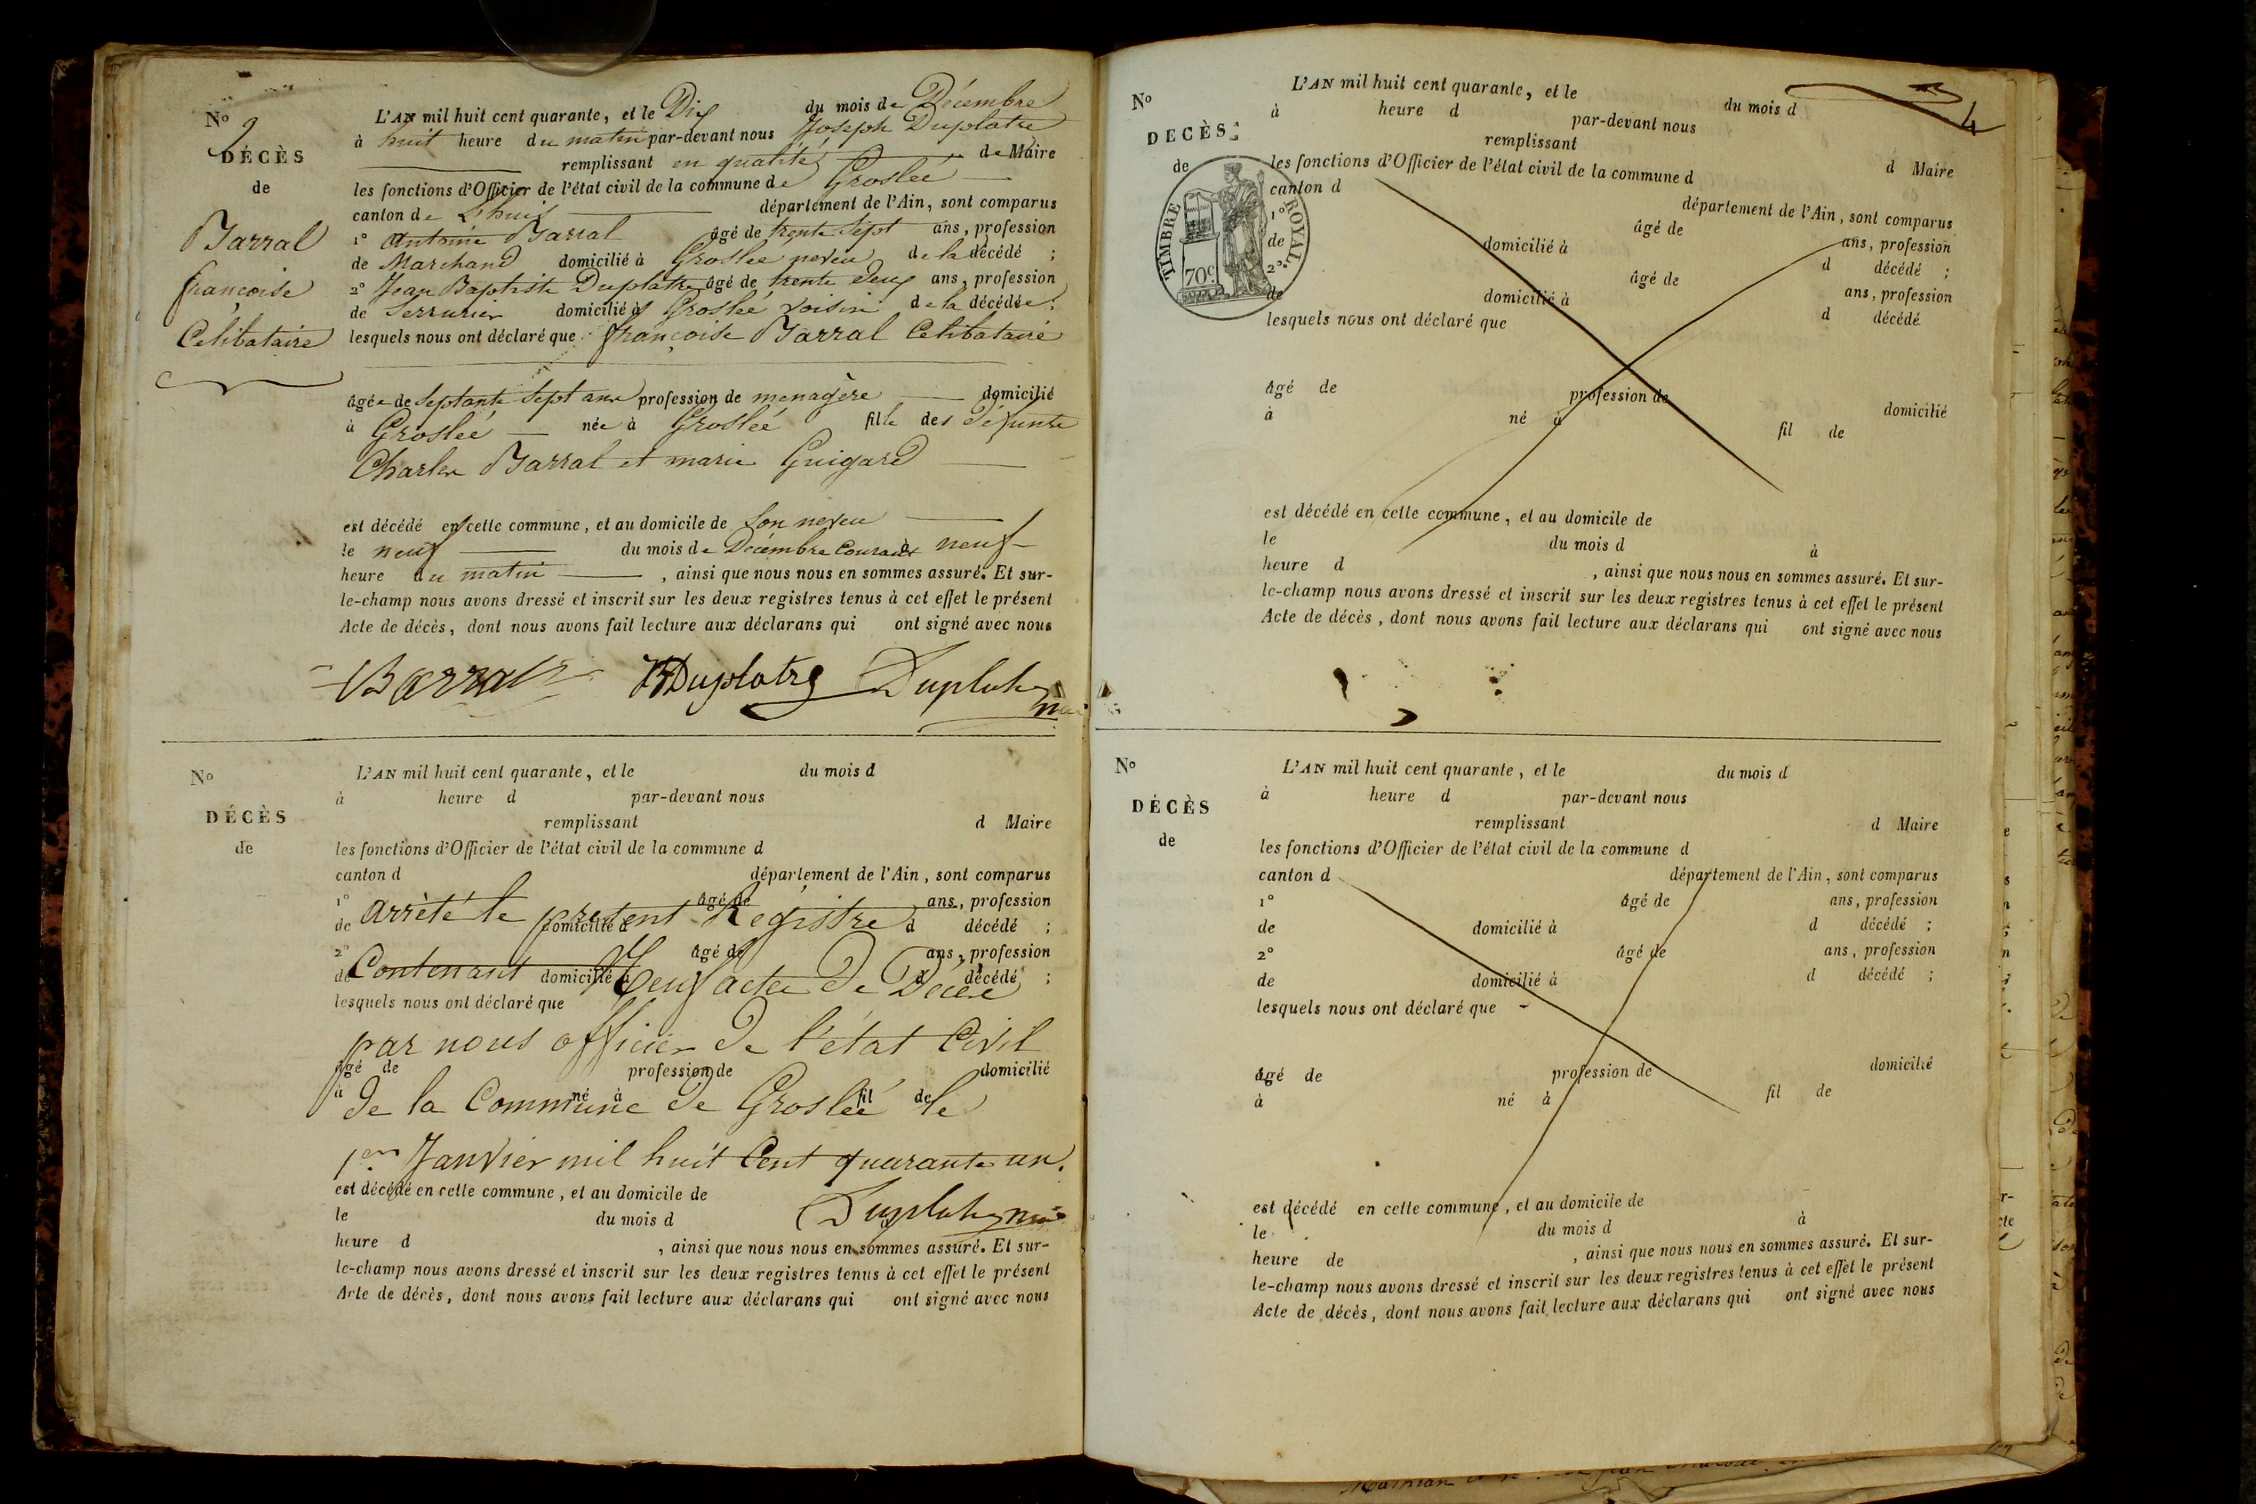 N° 9
DÉCÈS
de
Barral
françoise
Celibataire
L'AN mil huit cent quarante, et le Dix du mois de Décembre
à huit heure du matin par-devant nous Joseph Duplatre
remplissant en qualité de Maire
les fonctions d'Officier de l'état civil de la commune de Groslée
canton de L'huis département de l'Ain, sont comparus
1° Antoine Barral âgé de trente sept ans, profession
de Marchand domicilié à Groslée neveu de la décédé ;
2° Jean Baptiste Duplatre âgé de trente deux ans, profession
de Serrurier domicilié à Groslée voisin de la décédée ;
lesquels nous ont déclaré que françoise Barral Celibataire
âgée de septante sept ans profession de menagère domicilié
à Groslée née à Groslée fille des défunts
Charles Barral et marie Guigard
est décédé en cette commune, et au domicile de son neveu
le neuf du mois de Décembre Courant à neuf
heure du matin , ainsi que nous nous en sommes assuré. Et sur-
le-champ nous avons dressé et inscrit sur les deux registres tenus à cet effet le présent
Acte de décès, dont nous avons fait lecture aux déclarans qui ont signé avec nous
Barral JBDuplatre Duplatre
N°
DÉCÈS
de
L'AN mil huit cent quarante, et le du mois d
à heure d par-devant nous
remplissant d Maire
les fonctions d'Officier de l'état civil de la commune d
canton d département de l'Ain, sont comparus
1° âgé de ans, profession
arrêté le présent Registre
de domicilié à d décédé ;
2° âgé de ans, profession
Contenant Neuf actes De Décès
de domicilié à d décédé ;
lesquels nous ont déclaré que
par nous officier de l'état Civil
âgé de profession de domicilié
à né à fil de
de la Commune de Groslée le
1er Janvier mil huit Cent quarante un.
est décédé en cette commune, et au domicile de
Duplatre
le du mois d
heure d , ainsi que nous nous en sommes assuré. Et sur-
le-champ nous avons dressé et inscrit sur les deux registres tenus à cet effet le présent
Acte de décès, dont nous avons fait lecture aux déclarans qui ont signé avec nous
4
N°
DECÈS
de
TIMBRE ROYAL
70c.
L'AN mil huit cent quarante, et le du mois d
à heure d par-devant nous
remplissant d Maire
les fonctions d'Officier de l'état civil de la commune d
canton d département de l'Ain, sont comparus
1° âgé de ans, profession
de domicilié à d décédé ;
2° âgé de ans, profession
de domicilié à d décédé
lesquels nous ont déclaré que
âgé de profession de domicilié
à né à fil de
est décédé en cette commune, et au domicile de
le du mois d à
heure d , ainsi que nous nous en sommes assuré. Et sur-
le-champ nous avons dressé et inscrit sur les deux registres tenus à cet effet le présent
Acte de décès, dont nous avons fait lecture aux déclarans qui ont signé avec nous
N°
DÉCÈS
de
L'AN mil huit cent quarante, et le du mois d
à heure d par-devant nous
remplissant d Maire
les fonctions d'Officier de l'état civil de la commune d
canton d département de l'Ain, sont comparus
1° âgé de ans, profession
de domicilié à d décédé ;
2° âgé de ans, profession
de domicilié à d décédé ;
lesquels nous ont déclaré que
âgé de profession de domicilié
à né à fil de
est décédé en cette commune, et au domicile de
le du mois d à
heure de , ainsi que nous nous en sommes assuré. Et sur-
le-champ nous avons dressé et inscrit sur les deux registres tenus à cet effet le présent
Acte de décès, dont nous avons fait lecture aux déclarans qui ont signé avec nous